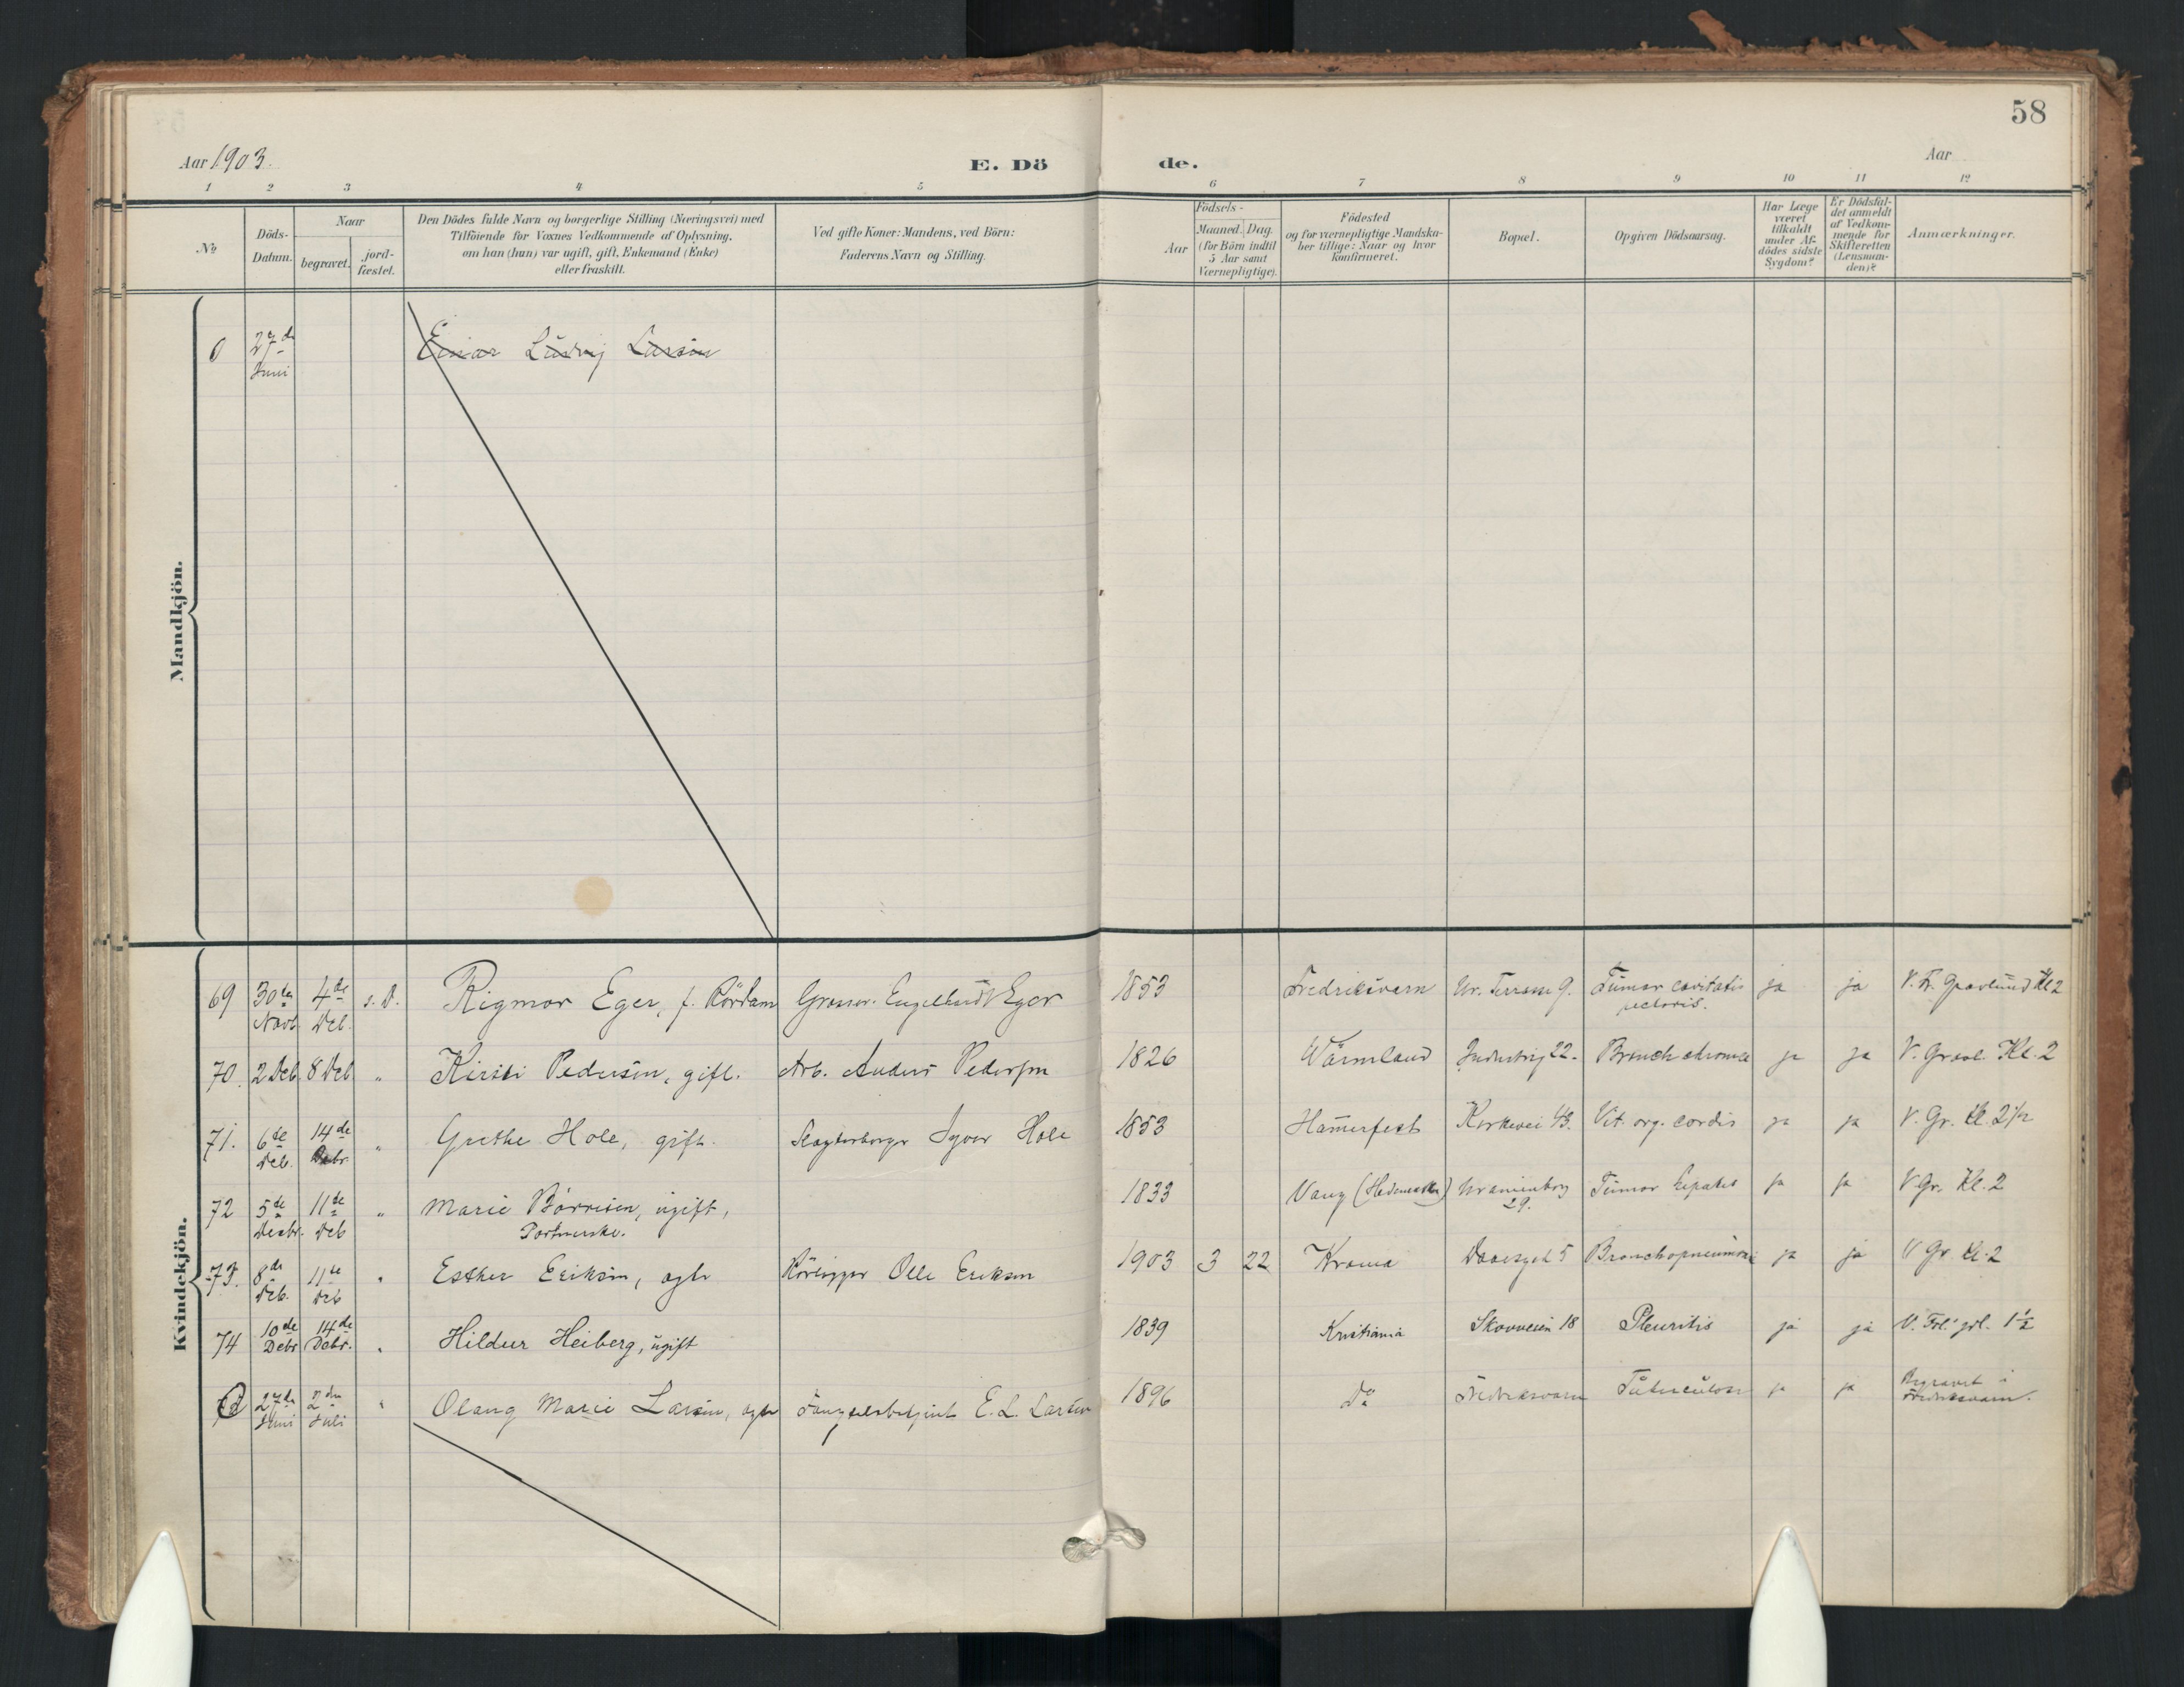 58
Aar 1903.
E. Dö de.
Aar
1 2 3 4 5 6 7 8 9 10 11 12
No
Döds-
Datum.
Naar
begravet.
jord-
fæstet.
Den Dödes fulde Navn og borgerlige Stilling (Næringsvei) med
Tilföiende for Voxnes Vedkommende af Oplysning,
om han (hun) var ugift, gift, Enkemand (Enke)
eller fraskilt.
Ved gifte Koner: Mandens, ved Börn:
Faderens Navn og Stilling.
Födsels-
Aar
Maaned. Dag.
(for Börn indtil
5 Aar samt
Værnepligtige).
Födested
og for værnepligtige Mandska-
ber tillige: Naar og hvor
konfirmeret.
Bopæl.
Opgiven Dödsaarsag.
Har Læge
været
tilkaldt
under Af-
dödes sidste
Sygdom?
Er Dödsfal-
det anmeldt
af Vedkom-
mende for
Skifteretten
(Lensman-
den)?
Anmærkninger.
Mandkjön.
0 27de Juni Einar Ludvig Larsen
Kvindekjön.
69 30te Novb. 4de Deb. s. D. Rigmor Eger, f. Rördam Grosser. Engelbredt Eger 1853 Fredriksværn Ur. Terrasse 9. Tumor cavitatis pectoris. ja ja V. Fr. Gravlund Kl 2
70. 2 Deb 8 Deb " Kirsti Pedersen, gift. Arb. Anders Pedersen 1826 Wärmland Industrig 22. Bronch chronica ja ja V. Gravl. Kl. 2
71. 6te Deb. 14de Debr. " Grethe Hole, gift. Iver Hole 1853 Hamerfest Kirkevei 43. Vit. org. cordis ja ja V. Gr. Kl. 2 1/2
72 5te Decbr. 11te Deb " Marie Börresen, ugift, Portnerske. 1833 Vang (Hedemarken) Uranienborg 29. Tumor hepatis ja ja V Gr. Kl. 2
73. 8de Deb. 11te Deb " Esther Eriksen, ægte Rörlægger Olle Eriksen 1903 3 22 Krania Daaesgt 5 Bronchopneumoni ja ja V Gr Kl. 2
74 10de Debr 14de Debr. " Hildur Heiberg, ugift 1839 Kristiania Skovveien 18 Pleuritis ja ja V. Frl. grl. 1 1/2
0 27de Juni 2den Juli " Olaug Marie Larsen, ægte Fængselsbetjent E. L. Larsen 1896 Do Fredriksværn Tuberculose ja ja Begravet i Fredriksværn.